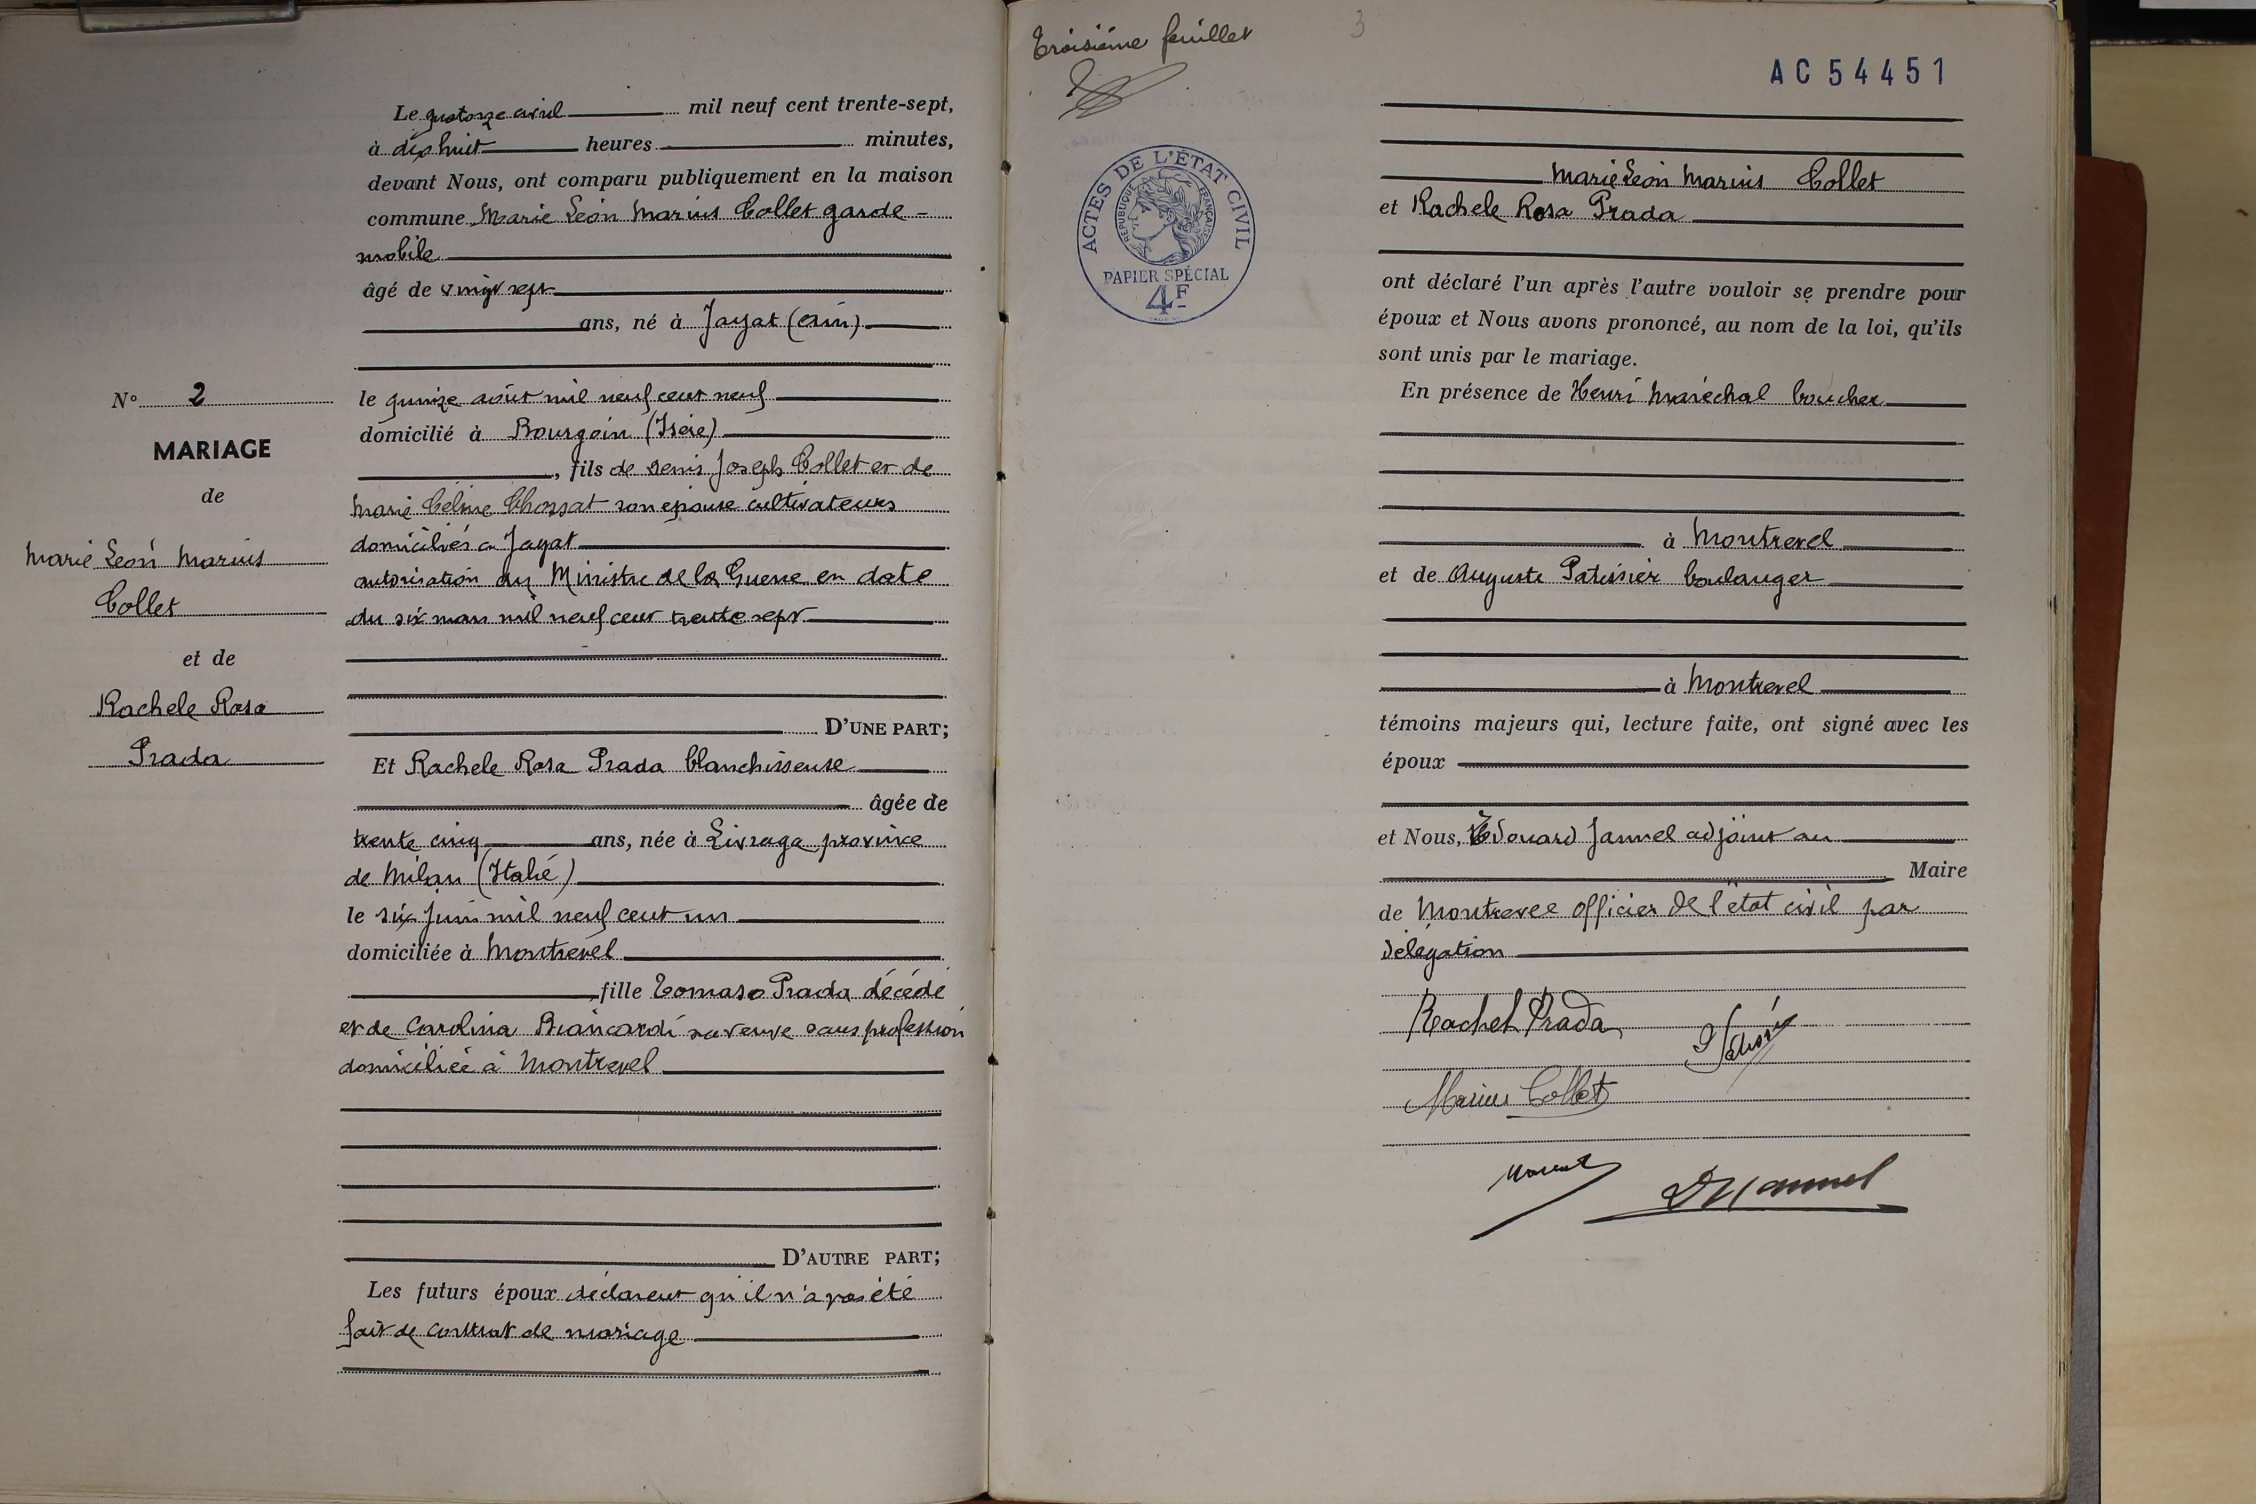 Le quatorze avril mil neuf cent trente-sept,
à dix huit heures minutes,
devant Nous, ont comparu publiquement en la maison
commune Marie Léon Marius Collet garde-
mobile
âgé de vingt sept
ans, né à Jayat (Ain)
le quinze août mil neuf cent neuf
domicilié à Bourgoin (Isère)
, fils de Denis Joseph Collet et de
Marie Céline Chossat son épouse cultivateurs
domiciliés à Jayat
autorisation du Ministre de la Guerre en date
du six mars mil neuf cent trente sept
D'UNE PART;
Et Rachele Rosa Prada blanchisseuse
âgée de
trente cinq ans, née à Livraga province
de Milan (Italie)
le six Juin mil neuf cent un
domiciliée à Montrevel
, fille Tomaso Prada décédé
et de Carolina Biancardi sa veuve sans profession
domiciliée à Montrevel
D'AUTRE PART;
Les futurs époux déclarent qu'il n'a pas été
fait de contrat de mariage
N° 2
MARIAGE
de
Marie Léon Marius
Collet
et de
Rachele Rosa
Prada
Troisième feuillet
3
AC54451
ACTES DE L'ÉTAT CIVIL
RÉPUBLIQUE FRANÇAISE
PAPIER SPÉCIAL
4F
Marie Léon Marius Collet
et Rachele Rosa Prada
ont déclaré l'un après l'autre vouloir se prendre pour
époux et Nous avons prononcé, au nom de la loi, qu'ils
sont unis par le mariage.
En présence de Henri Maréchal boucher
à Montrevel
et de Auguste Patissier boulanger
à Montrevel
témoins majeurs qui, lecture faite, ont signé avec les
époux
et Nous, Edouard Jannel adjoint au
Maire
de Montrevel officier de l'état civil par
délégation
Rachel Prada
Marius Collet